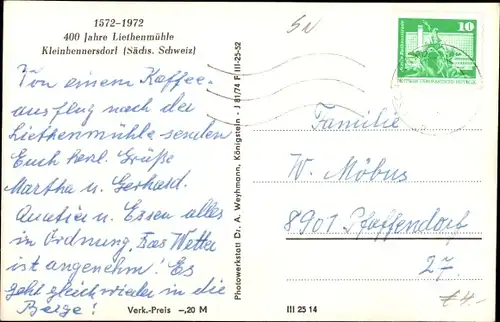 1572-1972
400 Jahre Liethenmühle
Kleinhennersdorf (Sächs. Schweiz)
Von einem Kaffee-
ausflug nach der
Liethenmühle senden
Euch herzl. Grüße
Martha u. Gerhard.
u. Essen alles
in Ordnung. Das Wetter
ist angenehm! Es
geht gleich wieder in die
Berge!
Verk.-Preis -,20 M
Photowerkstatt Dr. A. Weyhmann, Königstein - J 81/74 F III-25-52
10
Familie
W. Möbus
8901 Pfaffendorf
27
III 25 14
€ 4.-